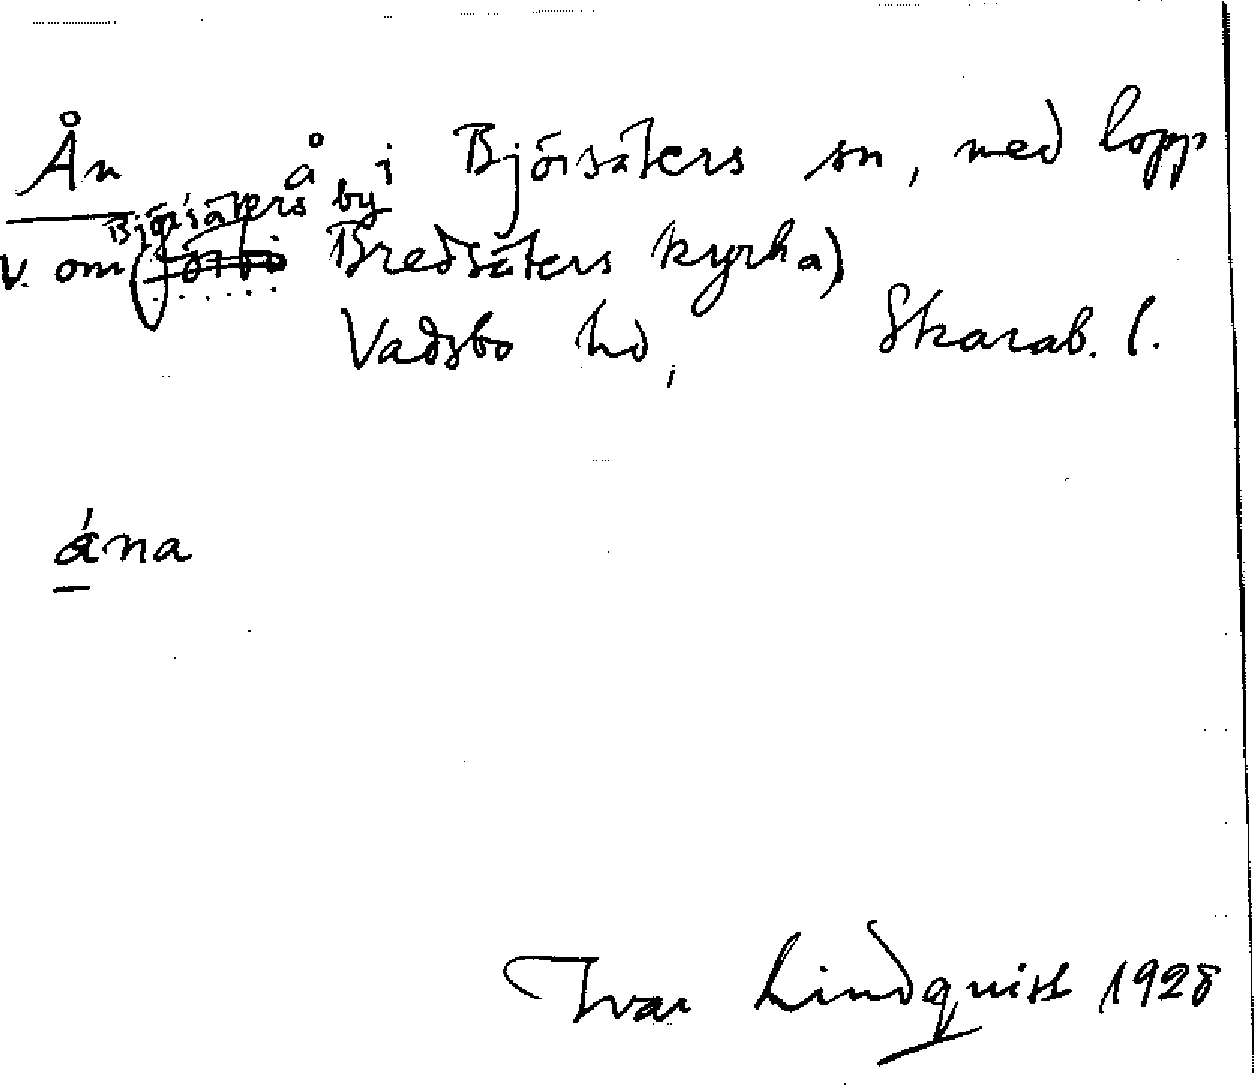 Ån å i Björsäters sn, med lopp
Björsäters by
v. om ( Bredsäters kyrka)
Vadsbo hd, Skarab. l.
ána
Ivar Lindquist 1928